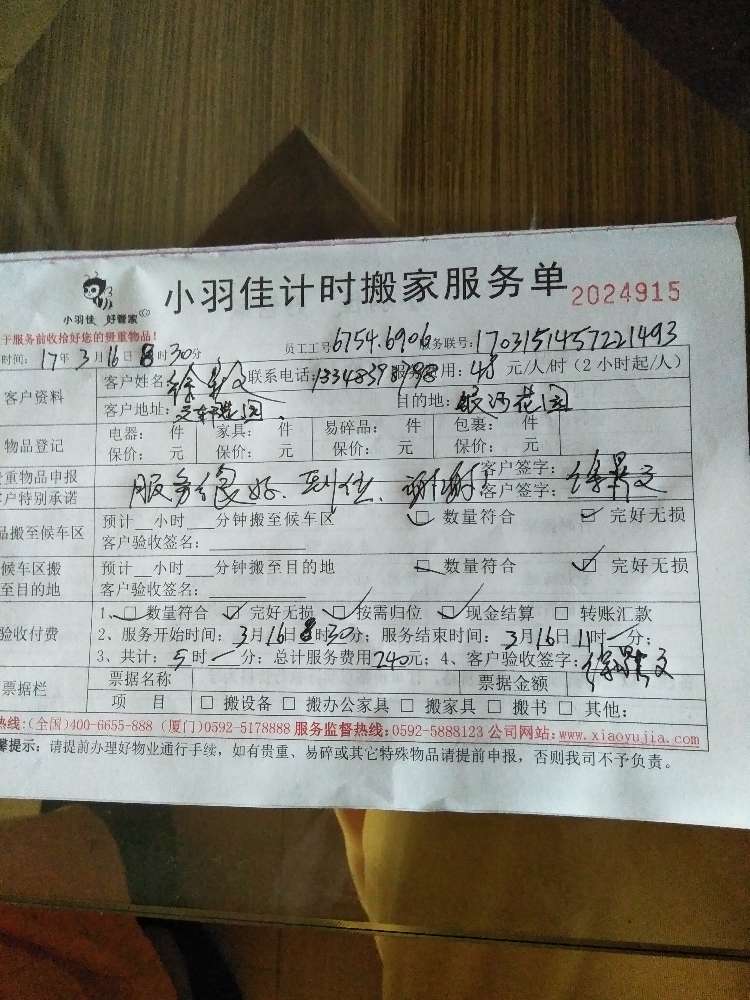 小羽佳 好管家
小羽佳计时搬家服务单 2024915
于服务前收拾好您的贵重物品!
时间: 17年 3月 16日 8时 30分 员工工号 6754.6906 服务联号: 1703151457221493
客户资料 客户姓名 联系电话: 用: 元/人/时 (2小时起/人)
客户地址: 目的地: 银河花园
物品登记 电器: 件 家具: 件 易碎品: 件 包裹: 件
保价: 元 保价: 元 保价: 元 保价: 元
贵重物品申报 客户签字:
客户特别承诺 服务很好、到位、谢谢! 客户签字:
品搬至候车区 预计 小时 分钟搬至候车区 □ 数量符合 ☑ 完好无损
客户验收签名:
候车区搬 预计 小时 分钟搬至目的地 □ 数量符合 ☑ 完好无损
至目的地 客户验收签名:
验收付费 1、☑ 数量符合 ☑ 完好无损 ☑ 按需归位 ☑ 现金结算 □ 转账汇款
2、服务开始时间: 3月16日8时30分; 服务结束时间: 3月16日11时一分;
3、共计: 5时一分; 总计服务费用240元; 4、客户验收签字:
票据栏 票据名称 票据金额
项 目 □ 搬设备 □ 搬办公家具 □ 搬家具 □ 搬书 □ 其他:
热线:(全国)400-6655-888 (厦门)0592-5178888 服务监督热线:0592-5888123 公司网站:www.xiaoyujia.com
馨提示: 请提前办理好物业通行手续, 如有贵重、易碎或其它特殊物品请提前申报, 否则我司不予负责。